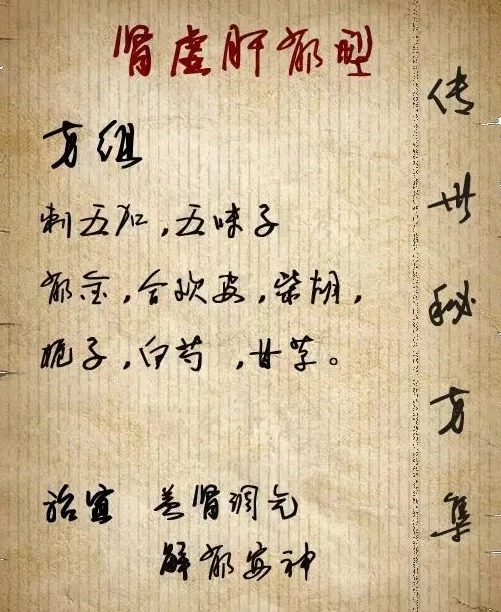 肾虚肝郁型
方组
刺五加，五味子
郁金，合欢皮，柴胡，
栀子，白芍，甘草。
治宜 益肾调气
解郁安神
传世秘方集